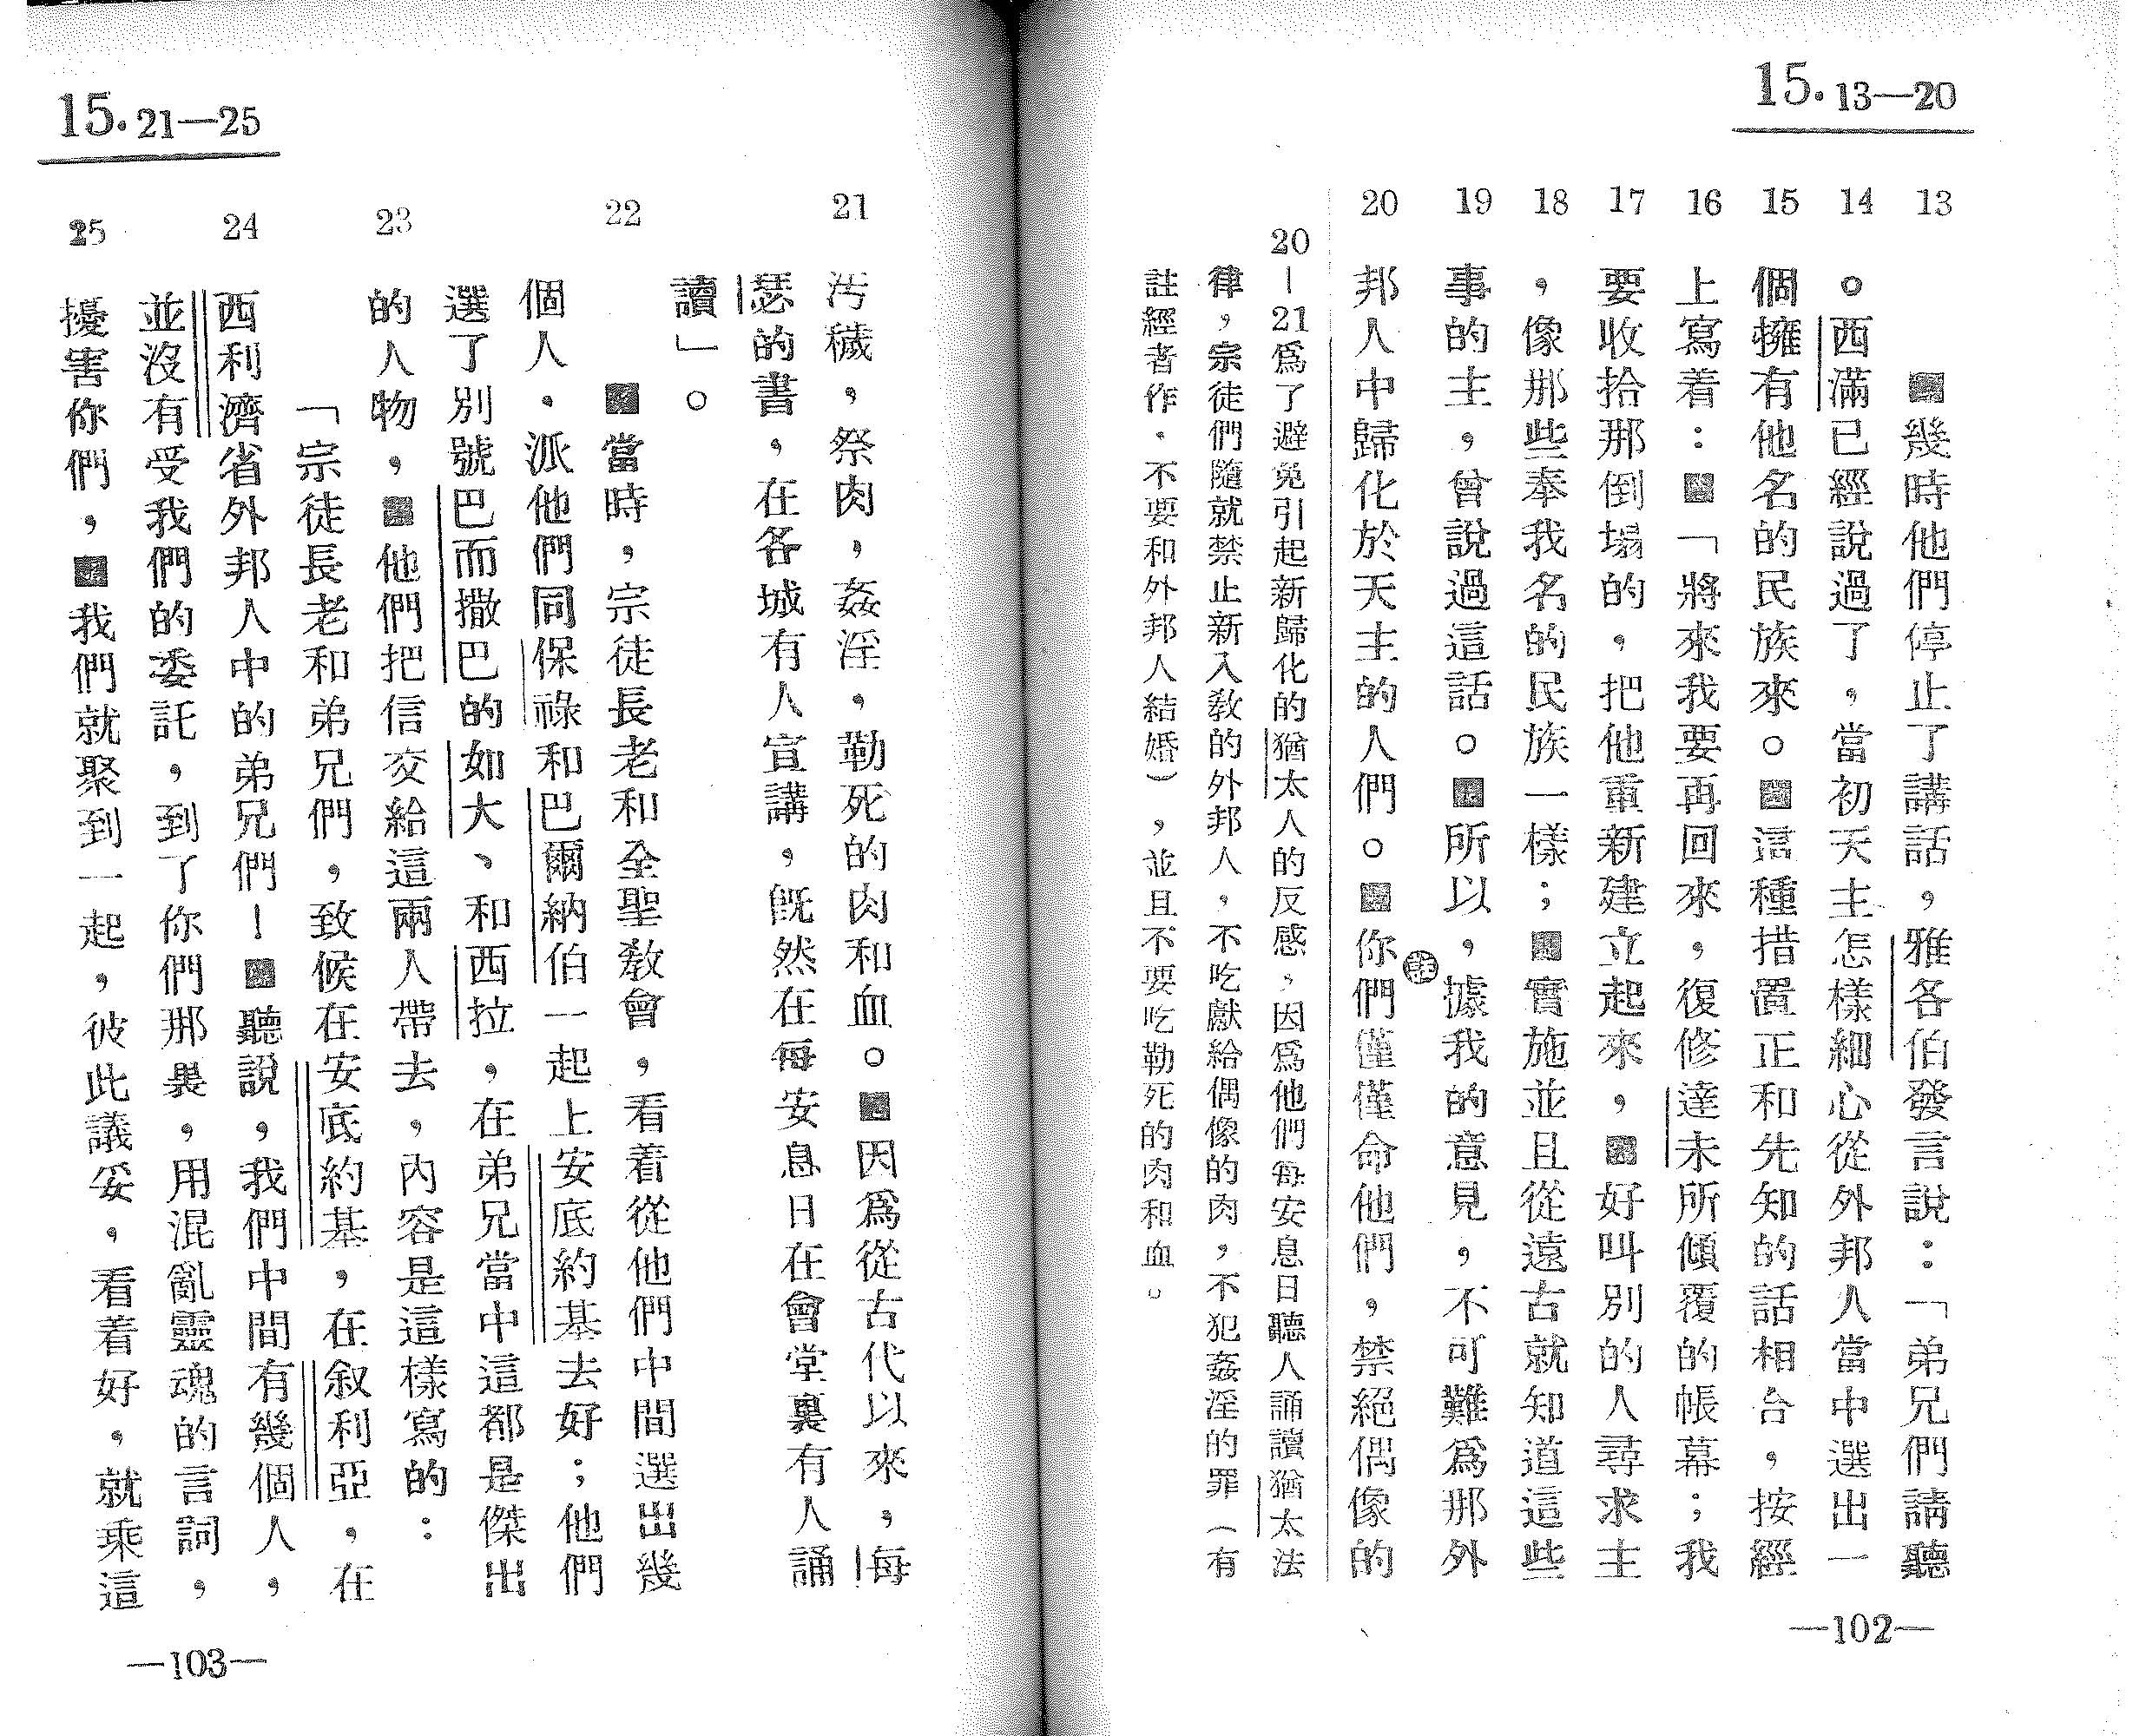 15. 13—20
13 14 15 16 17 18 19 20
幾時他們停止了講話,雅各伯發言說:「弟兄們請聽
。西滿已經說過了,當初天主怎樣細心從外邦人當中選出一
個擁有他名的民族來。這種措置正和先知的話相合,按經
上寫着:「將來我要再回來,復修達未所傾覆的帳幕;我
要收拾那倒塌的,把他重新建立起來,好叫別的人尋求主
,像那些奉我名的民族一樣;實施並且從遠古就知道這些
事的主,曾說過這話。所以,據我的意見,不可難為那外
邦人中歸化於天主的人們。你們僅僅命他們,禁絕偶像的
註
20—21為了避免引起新歸化的猶太人的反感,因為他們每安息日聽人誦讀猶太法
律,宗徒們隨就禁止新入敎的外邦人,不吃獻給偶像的肉,不犯姦淫的罪(有
註經者作.不要和外邦人結婚),並且不要吃勒死的肉和血。
—102—
15. 21—25
21 22 23 24 25
汚穢,祭肉,姦淫,勒死的肉和血。因為從古代以來,每
瑟的書,在各城有人宣講,旣然在每安息日在會堂裏有人誦
讀」。
當時,宗徒長老和全聖敎會,看着從他們中間選出幾
個人.派他們同保祿和巴爾納伯一起上安底約基去好;他們
選了別號巴而撒巴的如大、和西拉,在弟兄當中這都是傑出
的人物,他們把信交給這兩人帶去,內容是這樣寫的:
「宗徒長老和弟兄們,致候在安底約基,在叙利亞,在
西利濟省外邦人中的弟兄們!聽說,我們中間有幾個人,
並沒有受我們的委託,到了你們那裏,用混亂靈魂的言詞,
擾害你們,我們就聚到一起,彼此議妥,看着好,就乘這
—103—